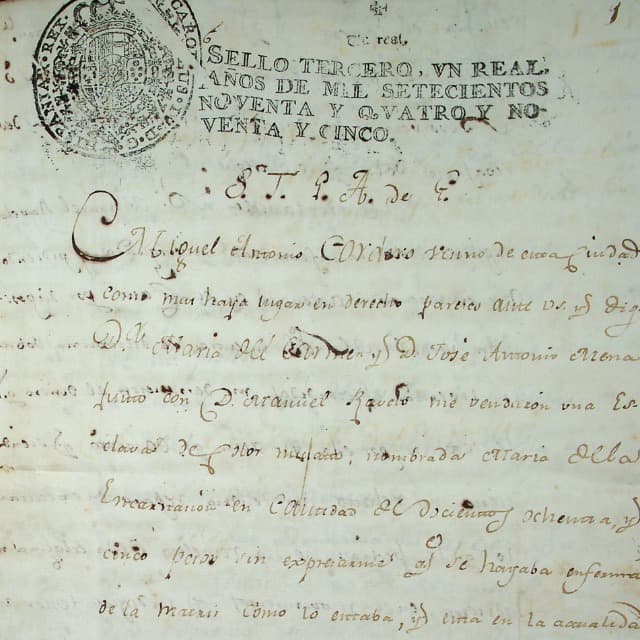 1
Un real.
SELLO TERCERO, VN REAL,
AÑOS DE MIL SETECIENTOS
NOVENTA Y QVATRO Y NO-
VENTA Y CINCO.
CAROLUS IV D G
HISPANIAR REX
Sr T. P. A. de G.
Miguel Antonio Cordero vecino de esta Ciudad
como mas haya lugar en derecho parece ante Vs. y digo
Da. Maria del Carmen y D. José Antonio Mena
junto con Dn Manuel Ravelo me vendieron una Es
clava de color mulato, nombrada Maria de la
Encarnacion en Cantidad de Docientos ochenta, y
cinco pesos sin expresarme qe. se hayaba enferma
de la matris como lo estaba, y está en la actualida